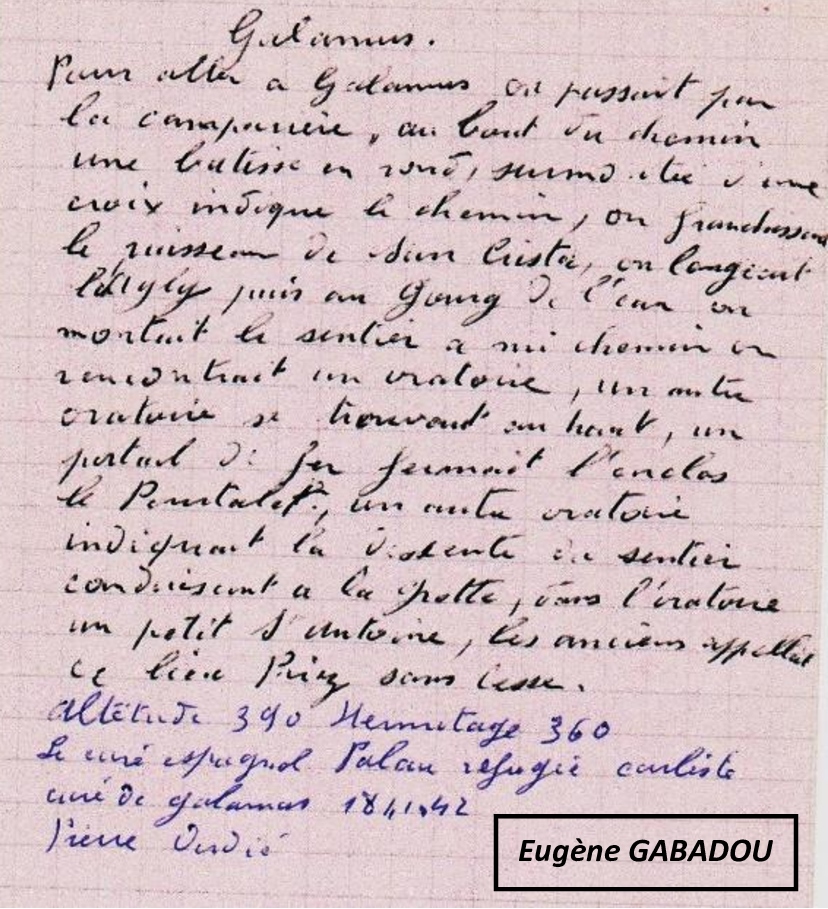 Galamus.
Pour aller a Galamus on passait par
la camparière, au bout du chemin
une batisse en rond, surmontée d'une
croix indique le chemin, on franchissait
le ruisseau de San Crista, on longeait
l'Agly puis au Gourg de l'eau on
montait le sentier a mi chemin on
rencontrait un oratoire, un autre
oratoire se trouvant en haut, un
portail de fer fermait l'enclos
le Pourtalet, un autre oratoire
indiquait la descente du sentier
conduisant a la grotte, dans l'oratoire
un petit St Antoine, les anciens appellait
ce lieu Priez sans cesse.
altétude 390 Hermitage 360
Le curé espagnol Palau refugié carliste
curé de galamus 1841.42
Pierre
Eugène GABADOU